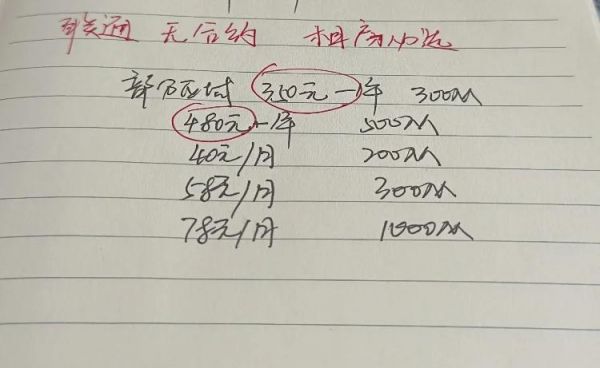 联通 无合约 租房必选
部分区域 350元一年 300M
480元一年 500M
40元/月 200M
58元/月 300M
78元/月 1000M